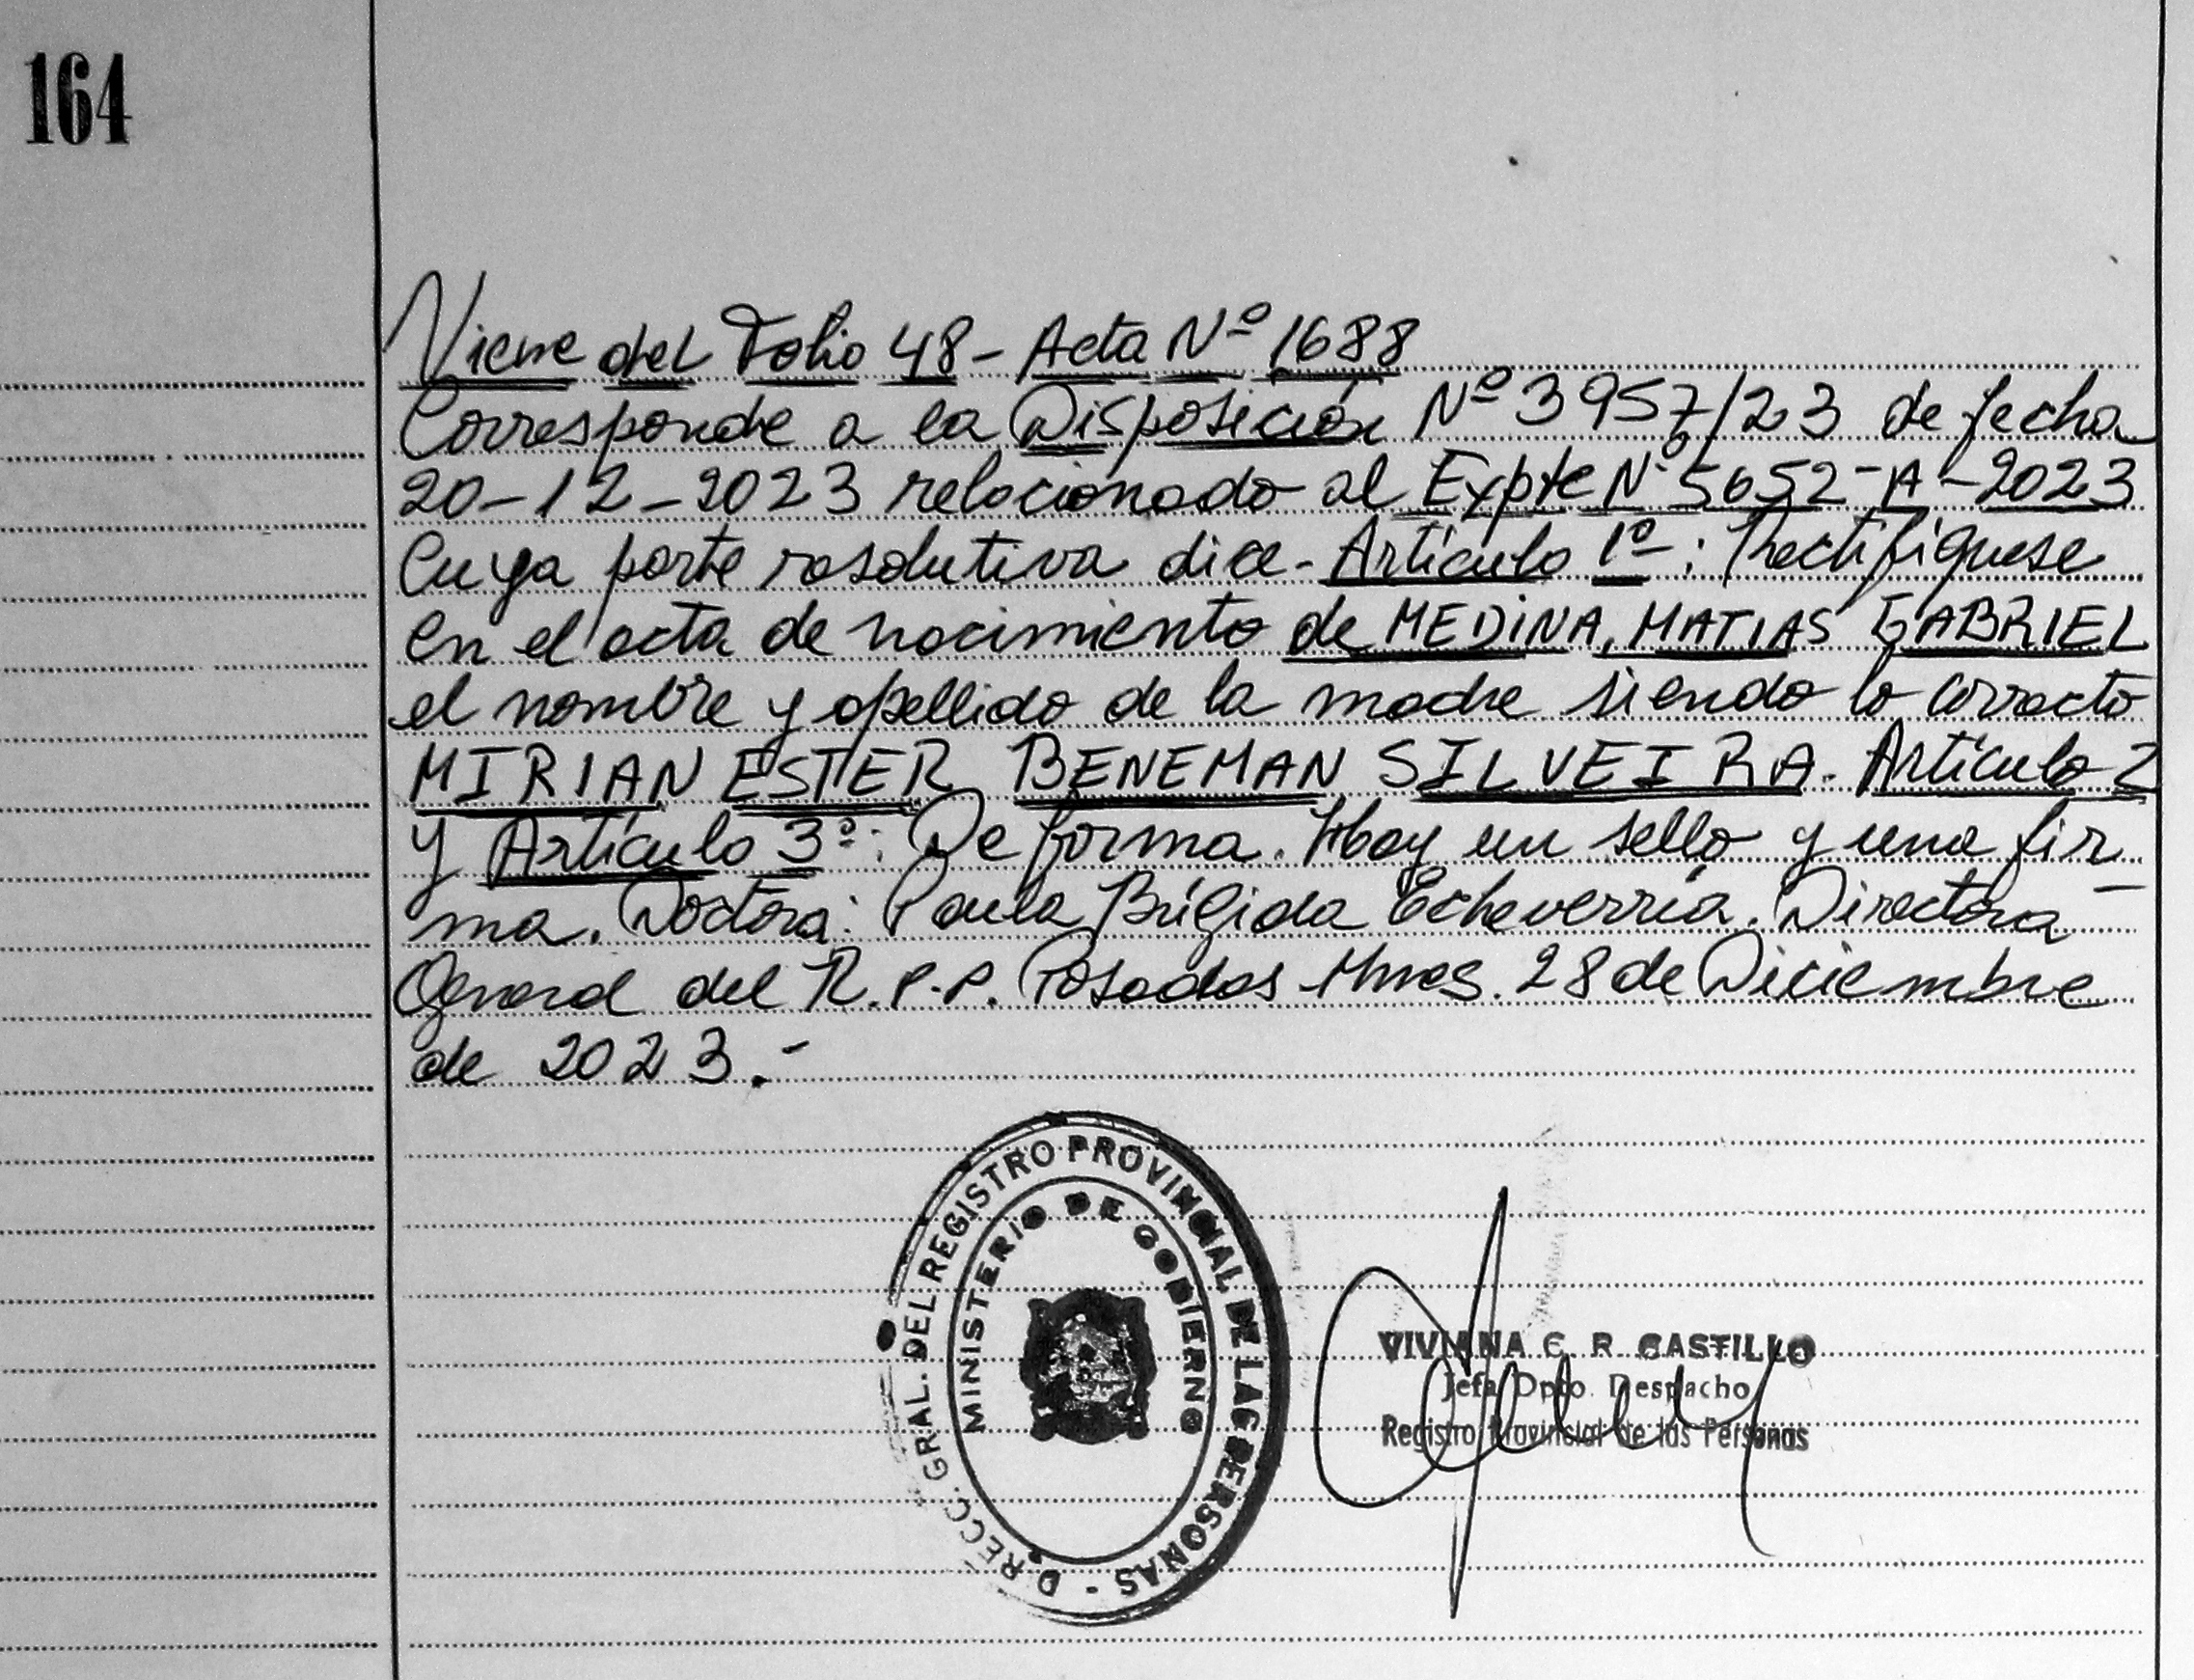 164
Viene del Folio 48 - Acta Nº 1688
Corresponde a la Disposición Nº 3957/23 de fecha
20-12-2023 relacionado al Expte Nº 5652-A-2023
Cuya parte resolutiva dice - Artículo 1º: Rectifíquese
en el acta de nacimiento de MEDINA, MATIAS GABRIEL
el nombre y apellido de la madre siendo lo correcto
MIRIAN ESTER BENEMAN SILVEIRA. Artículo 2
y Artículo 3º: De forma. Hay un sello y una fir
ma. Doctora: Paula Brígida Echeverría. Directora
General del R.P.P. Posadas Mnes. 28 de Diciembre
de 2023.-
DIRECC. GRAL. DEL REGISTRO PROVINCIAL DE LAS PERSONAS -
MINISTERIO DE GOBIERNO
VIVIANA E. R. CASTILLO
Jefa Dpto. Despacho
Registro Provincial de las Personas